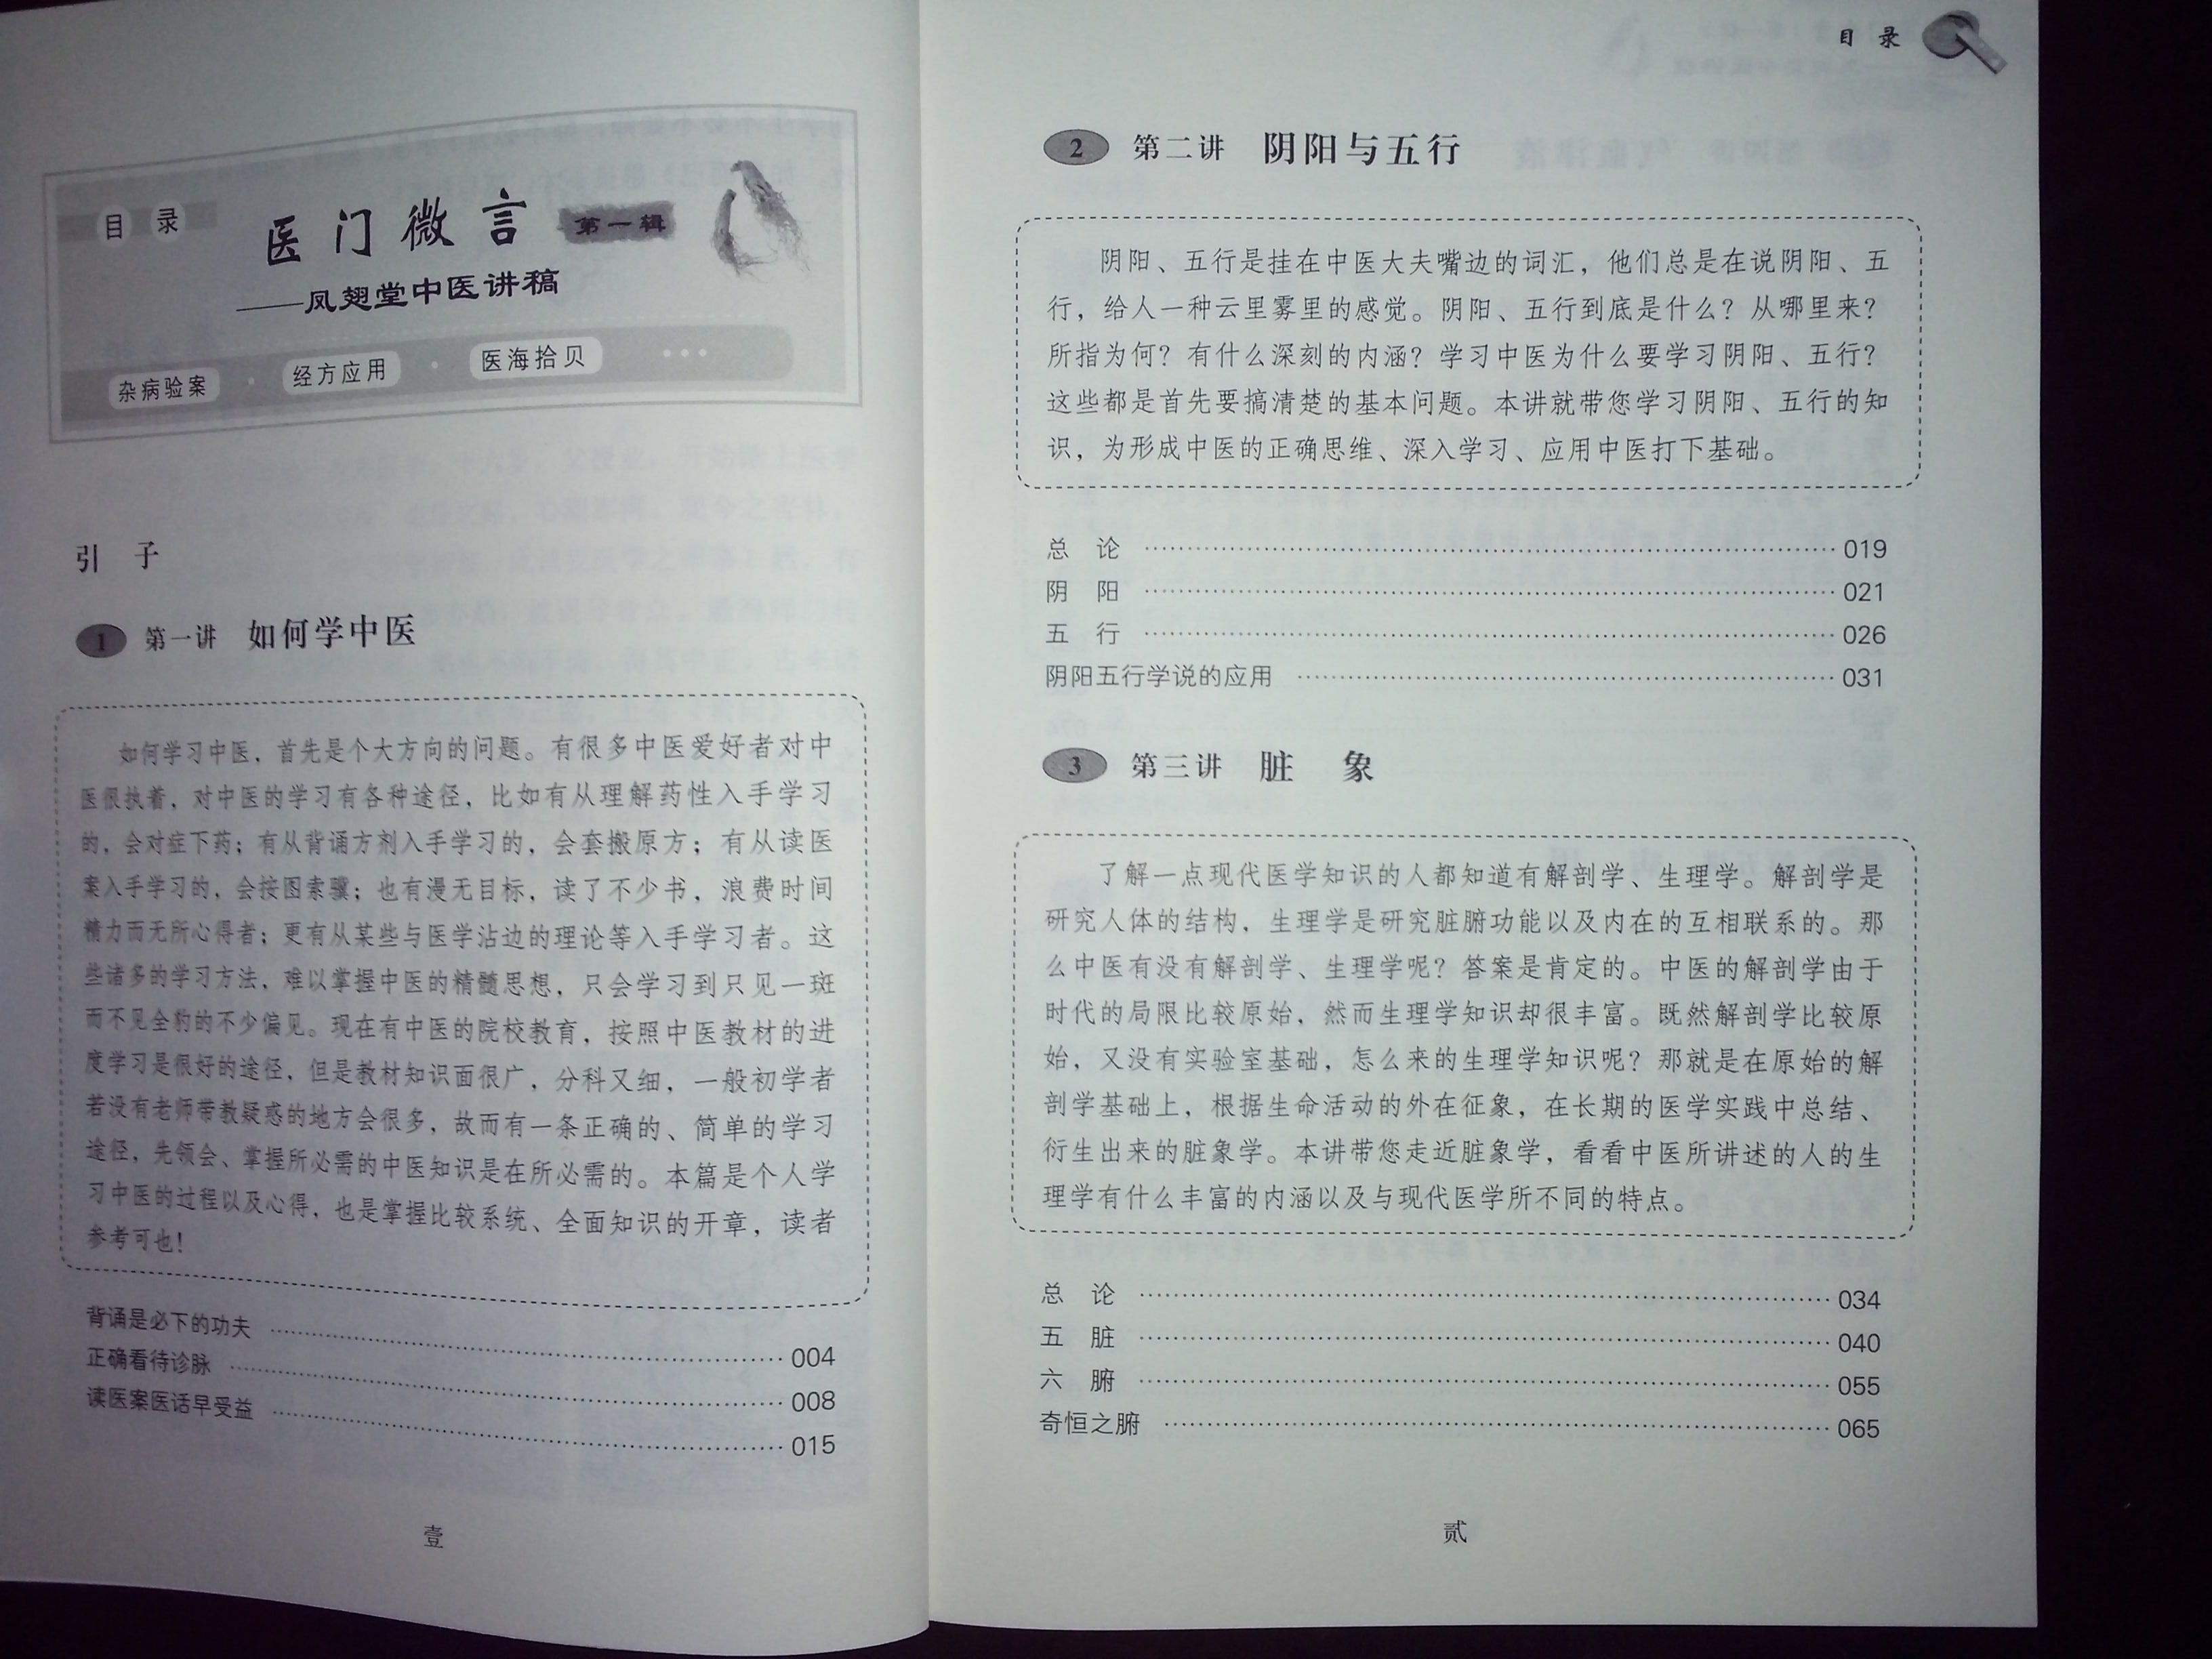 目 录
医门微言 第一辑
——凤翅堂中医讲稿
杂病验案 · 经方应用 · 医海拾贝 ···
引 子
1 第一讲 如何学中医
如何学习中医，首先是个大方向的问题。有很多中医爱好者对中
医很执着，对中医的学习有各种途径，比如有从理解药性入手学习
的，会对症下药；有从背诵方剂入手学习的，会套搬原方；有从读医
案入手学习的，会按图索骥；也有漫无目标，读了不少书，浪费时间
精力而无所心得者；更有从某些与医学沾边的理论等入手学习者。这
些诸多的学习方法，难以掌握中医的精髓思想，只会学习到只见一斑
而不见全豹的不少偏见。现在有中医的院校教育，按照中医教材的进
度学习是很好的途径，但是教材知识面很广，分科又细，一般初学者
若没有老师带教疑惑的地方会很多，故而有一条正确的、简单的学习
途径，先领会、掌握所必需的中医知识是在所必需的。本篇是个人学
习中医的过程以及心得，也是掌握比较系统、全面知识的开章，读者
参考可也！
背诵是必下的功夫 …… 004
正确看待诊脉 …… 008
读医案医话早受益 …… 015
壹
目 录
2 第二讲 阴阳与五行
阴阳、五行是挂在中医大夫嘴边的词汇，他们总是在说阴阳、五
行，给人一种云里雾里的感觉。阴阳、五行到底是什么？从哪里来？
所指为何？有什么深刻的内涵？学习中医为什么要学习阴阳、五行？
这些都是首先要搞清楚的基本问题。本讲就带您学习阴阳、五行的知
识，为形成中医的正确思维、深入学习、应用中医打下基础。
总 论 …… 019
阴 阳 …… 021
五 行 …… 026
阴阳五行学说的应用 …… 031
3 第三讲 脏 象
了解一点现代医学知识的人都知道有解剖学、生理学。解剖学是
研究人体的结构，生理学是研究脏腑功能以及内在的互相联系的。那
么中医有没有解剖学、生理学呢？答案是肯定的。中医的解剖学由于
时代的局限比较原始，然而生理学知识却很丰富。既然解剖学比较原
始，又没有实验室基础，怎么来的生理学知识呢？那就是在原始的解
剖学基础上，根据生命活动的外在征象，在长期的医学实践中总结、
衍生出来的脏象学。本讲带您走近脏象学，看看中医所讲述的人的生
理学有什么丰富的内涵以及与现代医学所不同的特点。
总 论 …… 034
五 脏 …… 040
六 腑 …… 055
奇恒之腑 …… 065
贰